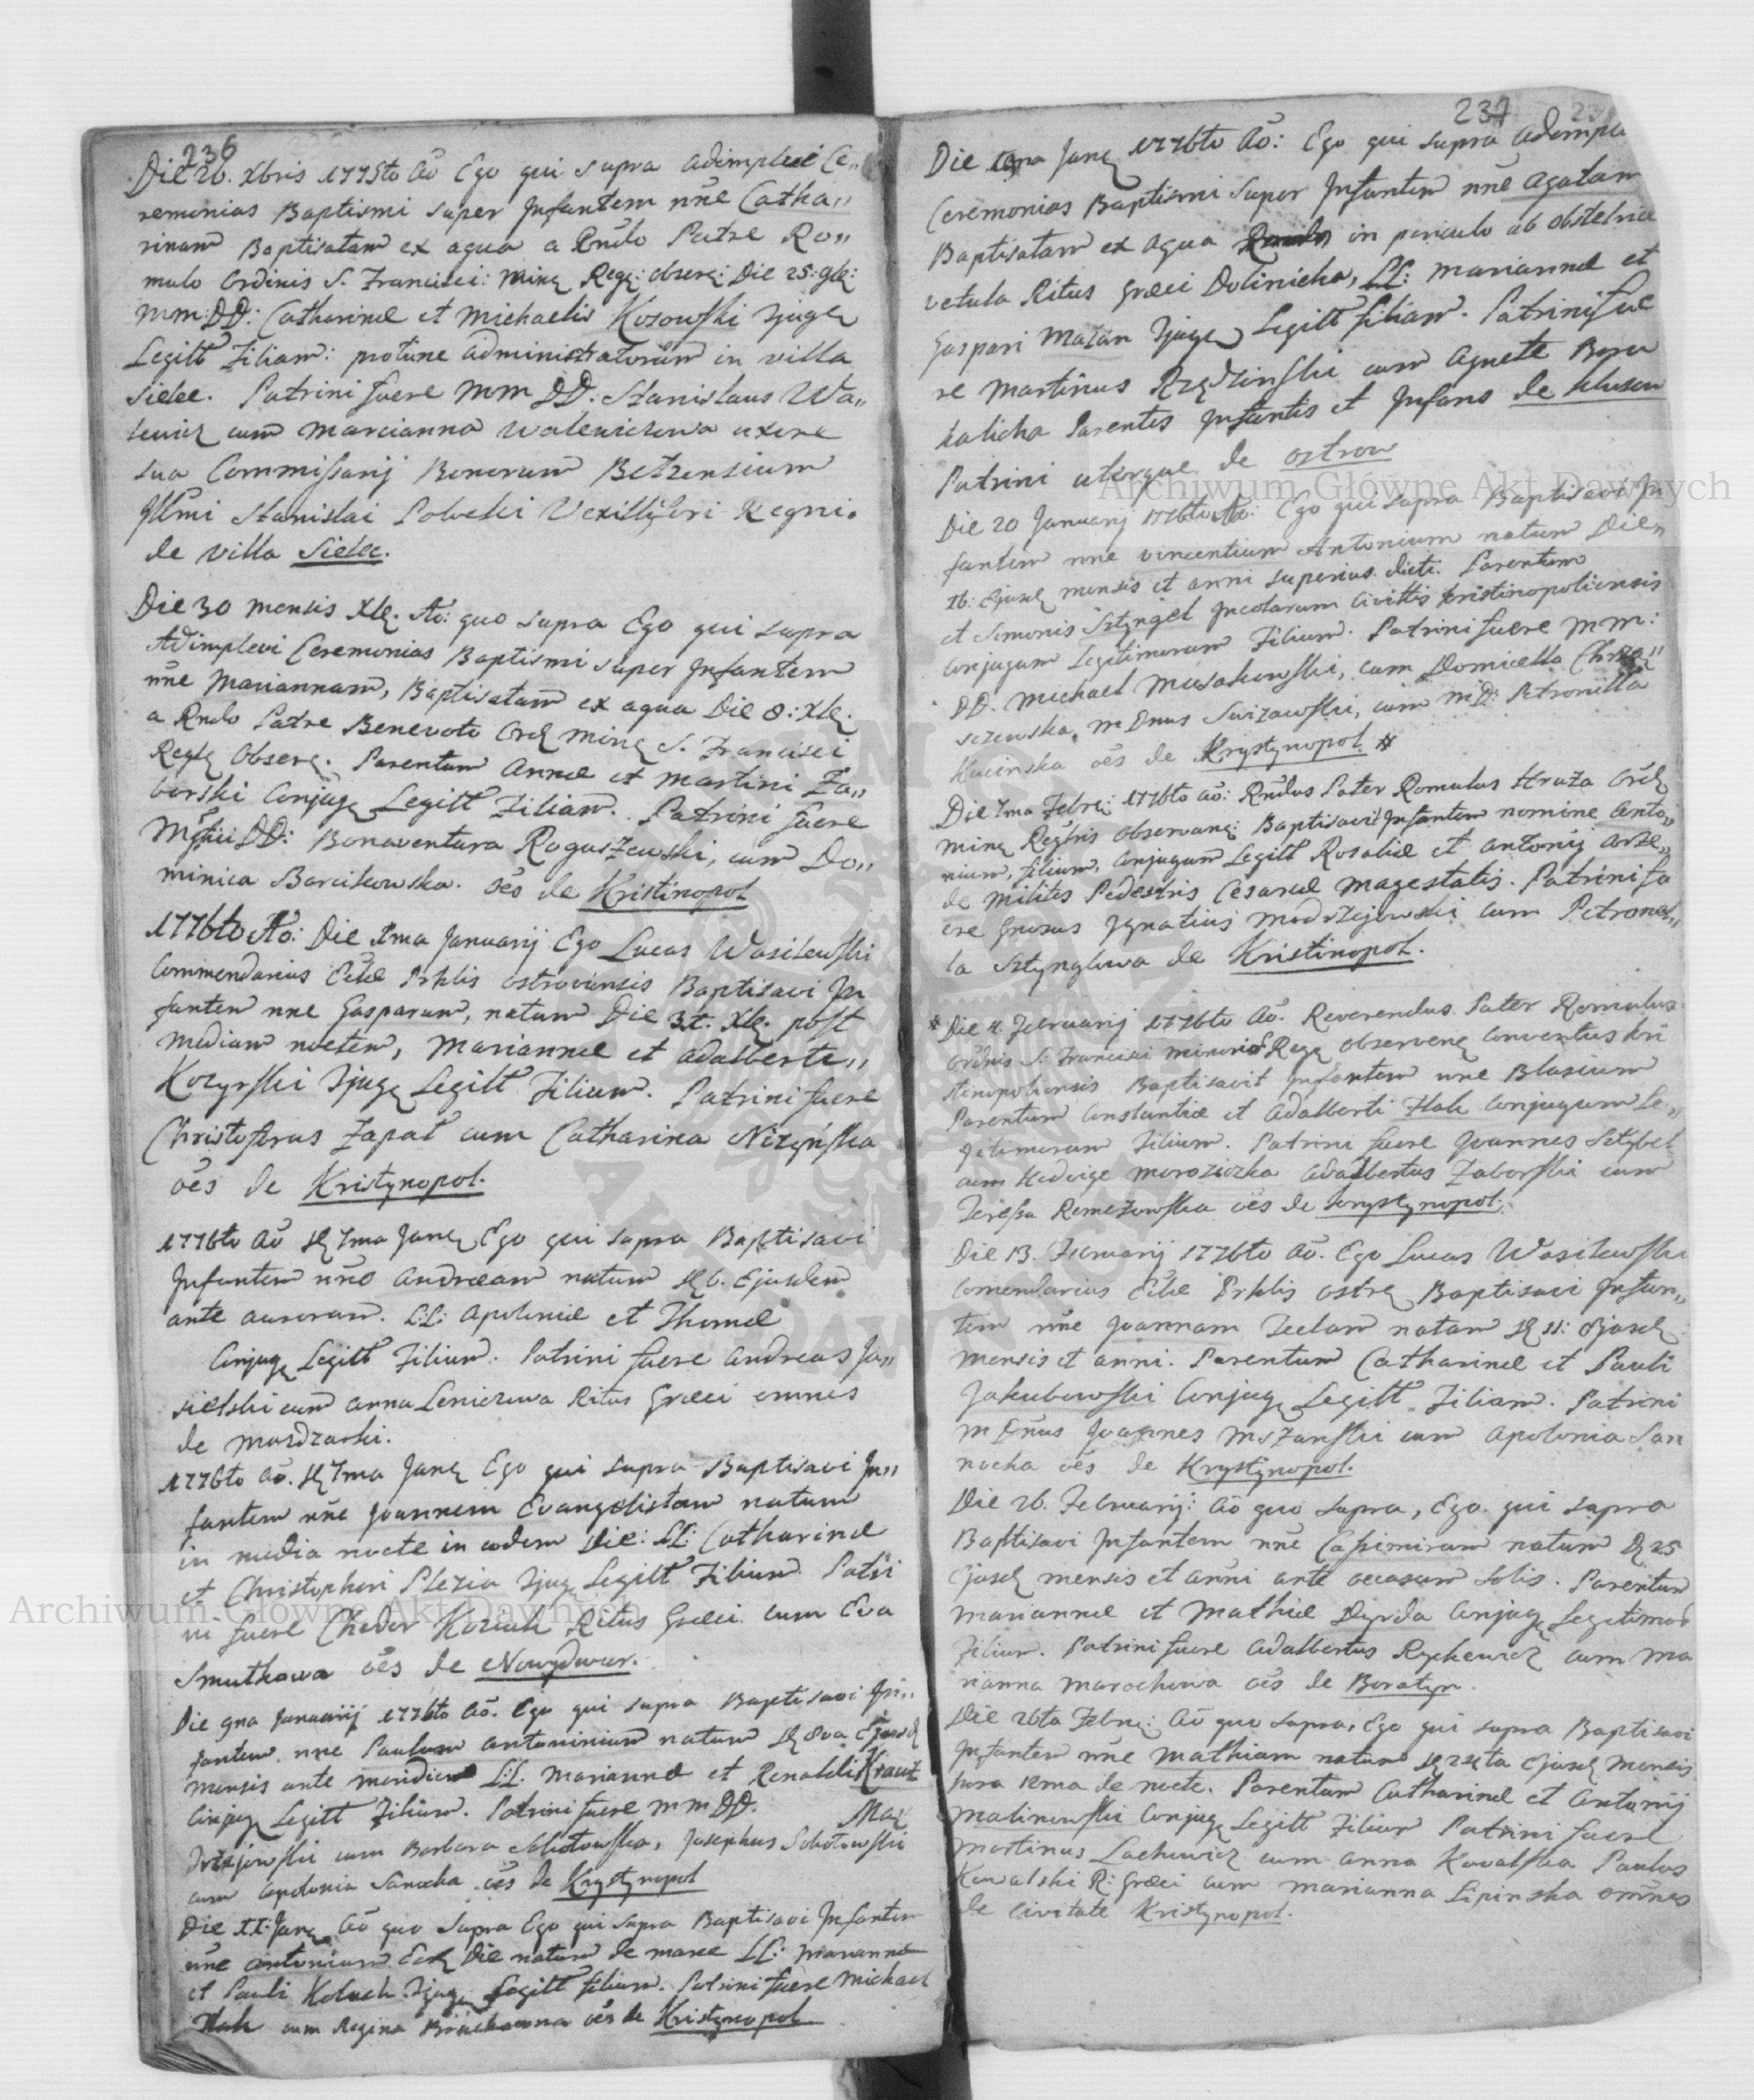 236
Die 26. Xbris 1775to Ao Ego qui supra adimplevi Ce„
remonias Baptismi super Infantem nne Catha„
rinam Baptisatam ex aqua a Rndo Patre Ro„
mulo Ordinis S. Francisci: Min: Reg: observ: Die 25: 9b:
MM:DD: Catharinae et Michaelis Kosowski Conjug
Legitt Filiam: protunc administratorum in villa
Sielec. Patrini fuere MM DD. Stanislaus Wa„
lewicz cum Marcianna Walewiczowa uxore
sua Commissarij Bonorum Betzensium
Illmi Stanislai Potocki Vexilliferi Regni.
de villa Sielec.
Die 30 mensis Xb. Ao: quo supra Ego qui supra
Adimplevi Ceremonias Baptismi super Infantem
nne Mariannam, Baptisatam ex aqua Die 8: Xb.
a Rndo Patre Benevoto Ord Min S. Francisci
Regl Observ. Parentum Annae et Martini Za„
borski Conjug Legitt Filiam. Patrini fuere
Mgfici DD: Bonaventura Roguszewski, cum Do„
minica Barcikowska. oes de Kristinopol
1776to Ao: Die 1ma Januarij Ego Lucas Wasilewski
Commendarius Eclae Prhlis Ostroviensis Baptisavi In
fantem nne Gasparum, natum Die 31. Xb. post
mediam noctem, Mariannae et Adalberti„
Kozyrski Conjug Legitt Filium. Patrini fuere
Christoferus Zapat cum Catharina Nizynska
oes de Kristynopol.
1776to Ao D 7ma Jan Ego qui supra Baptisavi
Infantem nne Andraeam natum D 6. Ejusdem
ante auroram. L:L: Apoloniae et Thomae
Conjug Legitt Filium. Patrini fuere Andreas Ja„
sielski cum Anna Leniczowa Ritus Graeci omnes
de Mosdzarki.
1776to Ao. D 7ma Jan Ego qui supra Baptisavi In„
fantem nne Joannem Evangelistam natum
in media nocte in eodem Die: LL: Catharinae
et Christophori Plezia Conjug Legitt Filium. Patri
ni fuere Chedor Koziak Ritus Graeci cum Eva
Smutkowa oes de Nowydwur.
Die 9na Januarij 1776to Ao. Ego qui supra Baptisavi In„
fantem nne Paulum Antoninum natum D 8va Ejusd
mensis ante meridiem L:L. Mariannae et Renaldi Kraus
Conjug Legitt Filium. Patrini fuere MM DD. Mo
drzejowski cum Barbara Sobotowska, Josephus Sobotowski
cum Apolonia Sanocka oes de Krystynopol
Die 11: Jan Ao quo supra Ego qui supra Baptisavi Infantem
nne Antonium Eod Die natum de mane LL: Mariannae
et Pauli Koluch Conjug Legitt filium. Patrini fuere Michael
Ptak cum Regina oes de Kristynopol
237
Die Jan 1776to Ao: Ego qui supra adimple
Ceremonias Baptismi super Infantem nne Agatam
Baptisatam ex aqua in periculo ab obstetrice
vetula Ritus Graeci Dolinicha, LL: Mariannae et
Gaspari Mazan Conjug Legitt filiam. Patrini fue
re Martinus Rządzinski cum Agnete Boru
kalicha Parentes Infantis et Infans de Klusow
Patrini uterque de Ostrow
Die 20 Januarij 1776to Ao: Ego qui supra Baptisavi In
fantem nne Vincentium Antonium natum Die
16: Ejusd mensis et anni superius dicti. Parentum
et Simonis Sztyngel Incolarum Civittis Kristinopoliensis
conjugum Legitimorum Filium. Patrini fuere MM:
DD. Michael Musakowski, cum Domicella Chrza„
szczewska, M Dnus Swizawski, cum MD: Petronilla
Kucinska oes de Krystynopol. *
Die 7ma Febr: 1776to Ao: Rndus Pater Romulus Hruza Ord
Min Reglris Observan: Baptisavit Infantem nomine Anto„
nium, filium, Conjugum Legitt Rosaliae et Antonij Orze„
de militis Pedestris Cesareae Magestatis. Patrini fu
ere Gnosus Ignatius Modrzejewski cum Petronel„
la Sztynglowa de Kristinopol.
* Die 4. Februarij 1776to Ao. Reverendus Pater Romulus
Ordnis S. Francisci minoris Reg observan Conventus Kri
stinopoliensis Baptisavit Infantem nne Blasium
Parentum Constantiae et Adalberti Ptak Conjugum Le„
gitimorum Filium. Patrini fuere Joannes Sztybel
cum Hedvige Moroziczka Adalbertus Zaborski cum
Teressa Remezowska oes de Krystynopol.
Die 13. Februarij 1776to Ao. Ego Lucas Wasilewski
Comendarius Eclae Prhlis Ostr Baptisavi Infan„
tem nne Joannam Teclam natam D 11: Ejusd
mensis et anni. Parentum Catharinae et Pauli
Jakubowski Conjug Legitt. Filiam. Patrini
M Dnus Joannes Mszanski cum Apolonia San
nocka oes de Krystynopol.
Die 26. Februarij: Ao quo supra, Ego qui supra
Baptisavi Infantem nne Casimirum natum D 25
Ejusd mensis et anni ante occasum Solis. Parentum
Mariannae et Mathiae Dyrda Conjug Legitimor
Filium. Patrini fuere Adalbertus Ryckewicz cum Ma
rianna Marochowa oes de Boratyn.
Die 26ta Febr: Ao quo supra, Ego qui supra Baptisavi
Infantem nne Mathiam natum D 24ta Ejusd Mensis
hora 12ma de nocte. Parentum Catharinae et Antonij
Malinowski Conjug Legitt Filium Patrini fuere
Martinus Lachowicz cum Anna Kowalska Paulus
Kowalski R: Graeci cum Marianna Lipinska omnes
de civitate Kristynopol.
Archiwum Główne Akt Dawnych
Archiwum Główne Akt Dawnych